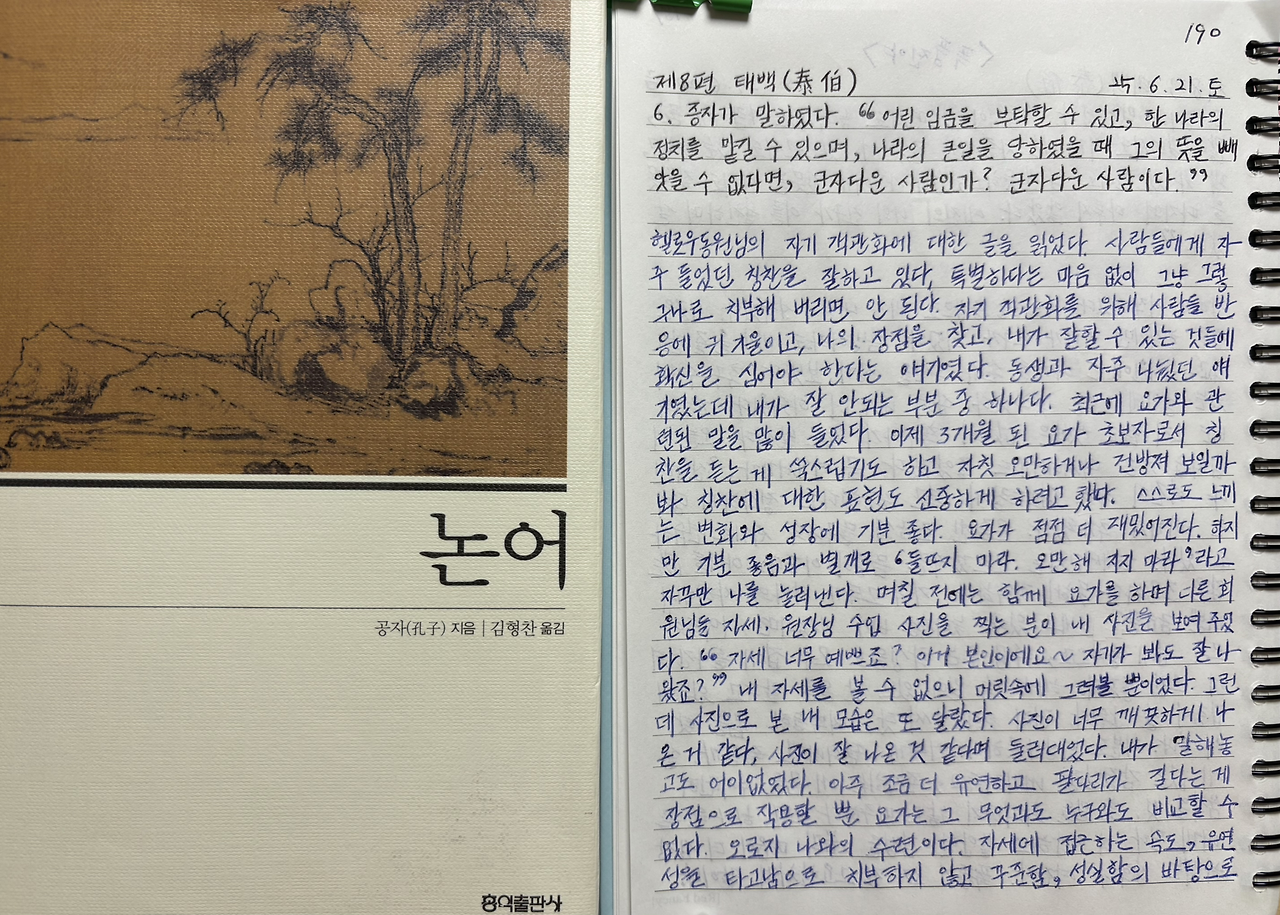 논어
공자(孔子) 지음 | 김형찬 옮김
홍익출판사
190
제8편 태백(泰伯) 25. 6. 21. 토
6. 증자가 말하였다. "어린 임금을 부탁할 수 있고, 한 나라의
정치를 맡길 수 있으며, 나라의 큰일을 당하였을 때 그의 뜻을 빼
앗을 수 없다면, 군자다운 사람인가? 군자다운 사람이다."
헬로우동원님의 자기 객관화에 대한 글을 읽었다. 사람들에게 자
주 들었던 칭찬을 잘하고 있다, 특별하다는 마음 없이 그냥 그렇
그나로 치부해 버리면 안 된다. 자기 객관화를 위해 사람들 반
응에 귀 기울이고, 나의 장점을 찾고, 내가 잘할 수 있는 것들에
확신을 심어야 한다는 얘기였다. 동생과 자주 나눴던 얘
기였는데 내가 잘 안되는 부분 중 하나다. 최근에 요가와 관
련된 말을 많이 들었다. 이제 3개월 된 요가 초보자로서 칭
찬을 듣는 게 쑥스럽기도 하고 자칫 오만하거나 건방져 보일까
봐 칭찬에 대한 표현도 신중하게 하려고 했다. 스스로도 느끼
는 변화와 성장에 기분 좋다. 요가가 점점 더 재밌어진다. 하지
만 기분 좋음과 별개로 '들뜨지 마라. 오만해 지지 마라'라고
자꾸만 나를 눌러낸다. 며칠 전에는 함께 요가를 하며 다른 회
원님들 자세. 원장님 수업 사진을 찍는 분이 내 사진을 보여 주었
다. "자세 너무 예쁘죠? 이거 본인이에요~ 자기가 봐도 잘 나
왔죠?" 내 자세를 볼 수 없으니 머릿속에 그려볼 뿐이었다. 그런
데 사진으로 본 내 모습은 또 달랐다. 사진이 너무 깨끗하게 나
온 거 같다, 사진이 잘 나온 것 같다며 둘러대었다. 내가 말해놓
고도 어이없었다. 아주 조금 더 유연하고 팔다리가 길다는 게
장점으로 작용할 뿐 요가는 그 무엇과도 누구와도 비교할 수
없다. 오로지 나와의 수련이다. 자세에 접근하는 속도, 유연
성을 타고남으로 치부하지 않고 꾸준함, 성실함의 바탕으로